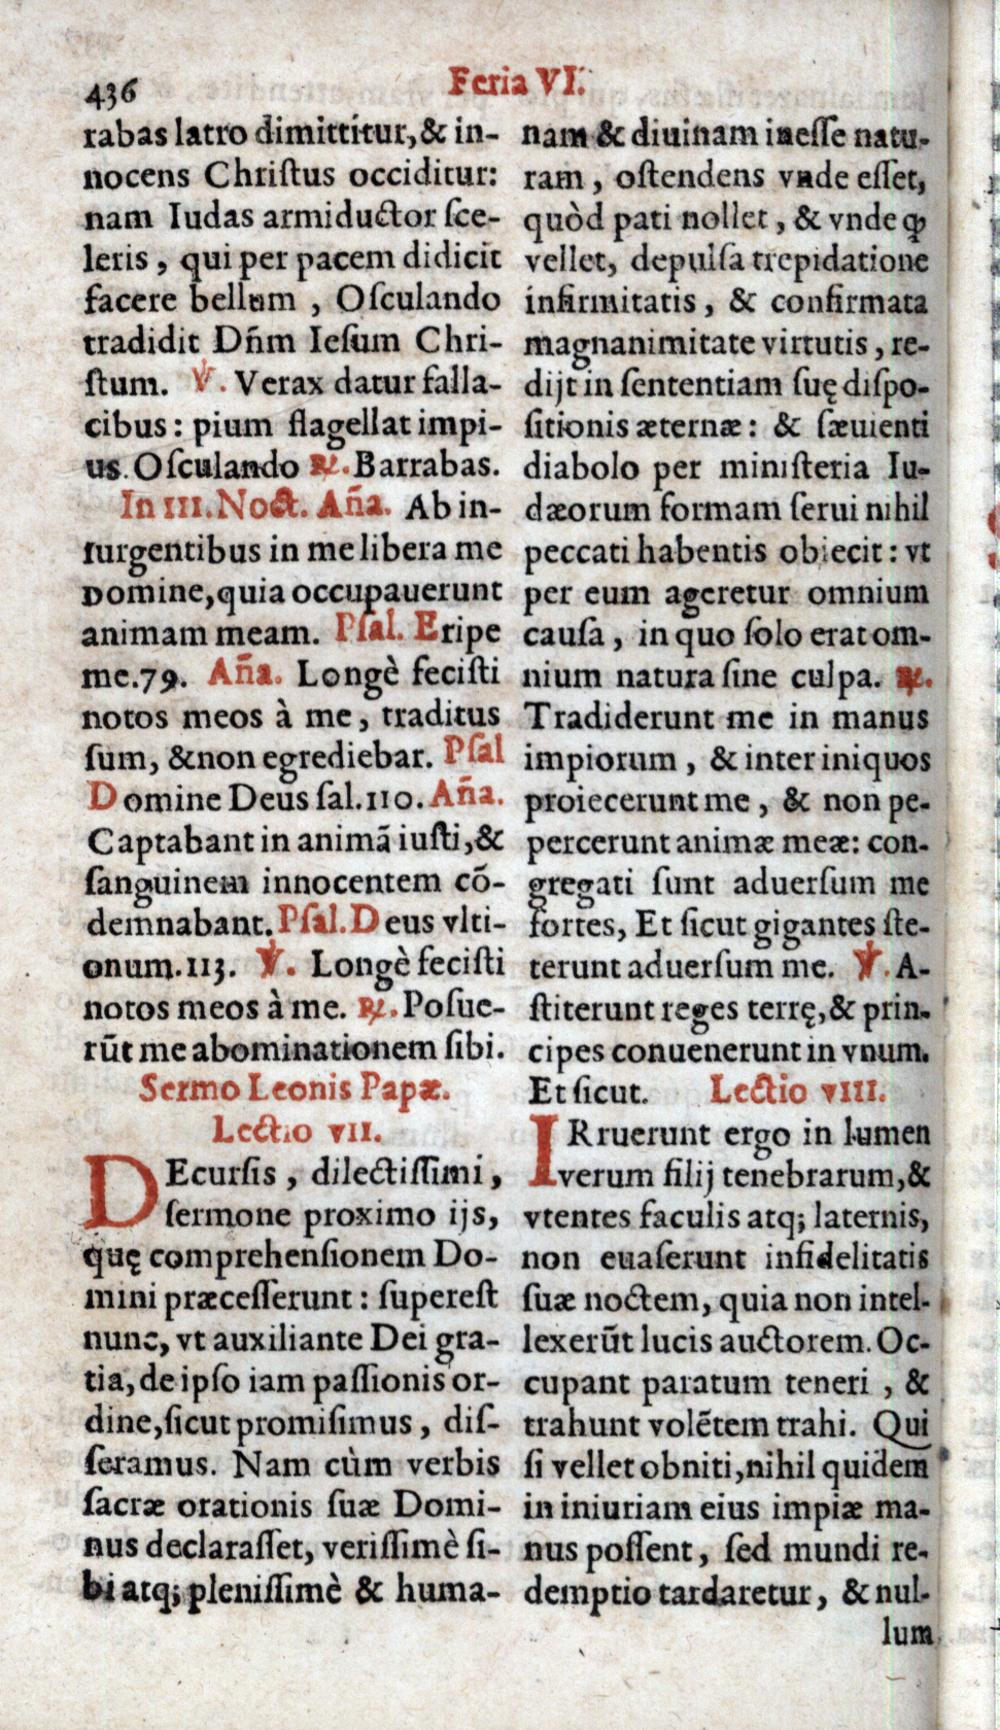 436
Feria VI.
rabas latro dimittitur,& in-
nocens Chriſtus occiditur:
nam Iudas armiductor ſce-
leris , qui per pacem didicit
facere bellum , Oſculando
tradidit Dñm Ieſum Chri-
ſtum. ℣. Verax datur falla-
cibus : pium flagellat impi-
us. Oſculando ℟. Barrabas.
In III. Noct. Aña. Ab in-
ſurgentibus in me libera me
Domine, quia occupauerunt
animam meam. Pſal. Eripe
me.79. Aña. Longè feciſti
notos meos à me , traditus
ſum, & non egrediebar. Pſal
Domine Deus ſal.110. Aña.
Captabant in animã iuſti,&
ſanguinem innocentem cõ-
demnabant. Pſal. Deus vlti-
onum.113. ℣. Longè feciſti
notos meos à me. ℟. Poſue-
rũt me abominationem ſibi.
Sermo Leonis Papæ.
Lectio VII.
DEcurſis , dilectiſſimi ,
ſermone proximo ijs,
quę comprehenſionem Do-
mini præceſſerunt : ſupereſt
nunc, vt auxiliante Dei gra-
tia, de ipſo iam paſſionis or-
dine, ſicut promiſimus , diſ-
ſeramus. Nam cùm verbis
ſacræ orationis ſuæ Domi-
nus declaraſſet, veriſſimè ſi-
bi atq; pleniſſimè & huma-
nam & diuinam ineſſe natu-
ram , oſtendens vnde eſſet,
quòd pati nollet , & vnde ꝙ
vellet, depulſa trepidatione
infirmitatis , & confirmata
magnanimitate virtutis , re-
dijt in ſententiam ſuę diſpo-
ſitionis æternæ : & ſæuienti
diabolo per miniſteria Iu-
dæorum formam ſerui nihil
peccati habentis obiecit : vt
per eum ageretur omnium
cauſa , in quo ſolo erat om-
nium natura ſine culpa. ℟.
Tradiderunt me in manus
impiorum , & inter iniquos
proiecerunt me , & non pe-
percerunt animæ meæ: con-
gregati ſunt aduerſum me
fortes, Et ſicut gigantes ſte-
terunt aduerſum me. ℣. A-
ſtiterunt reges terrę,& prin-
cipes conuenerunt in vnum.
Et ſicut. Lectio VIII.
IRruerunt ergo in lumen
verum filij tenebrarum,&
vtentes faculis atq; laternis,
non euaſerunt infidelitatis
ſuæ noctem, quia non intel-
lexerũt lucis auctorem. Oc-
cupant paratum teneri , &
trahunt volẽtem trahi. Qui
ſi vellet obniti, nihil quidem
in iniuriam eius impiæ ma-
nus poſſent , ſed mundi re-
demptio tardaretur , & nul-
lum